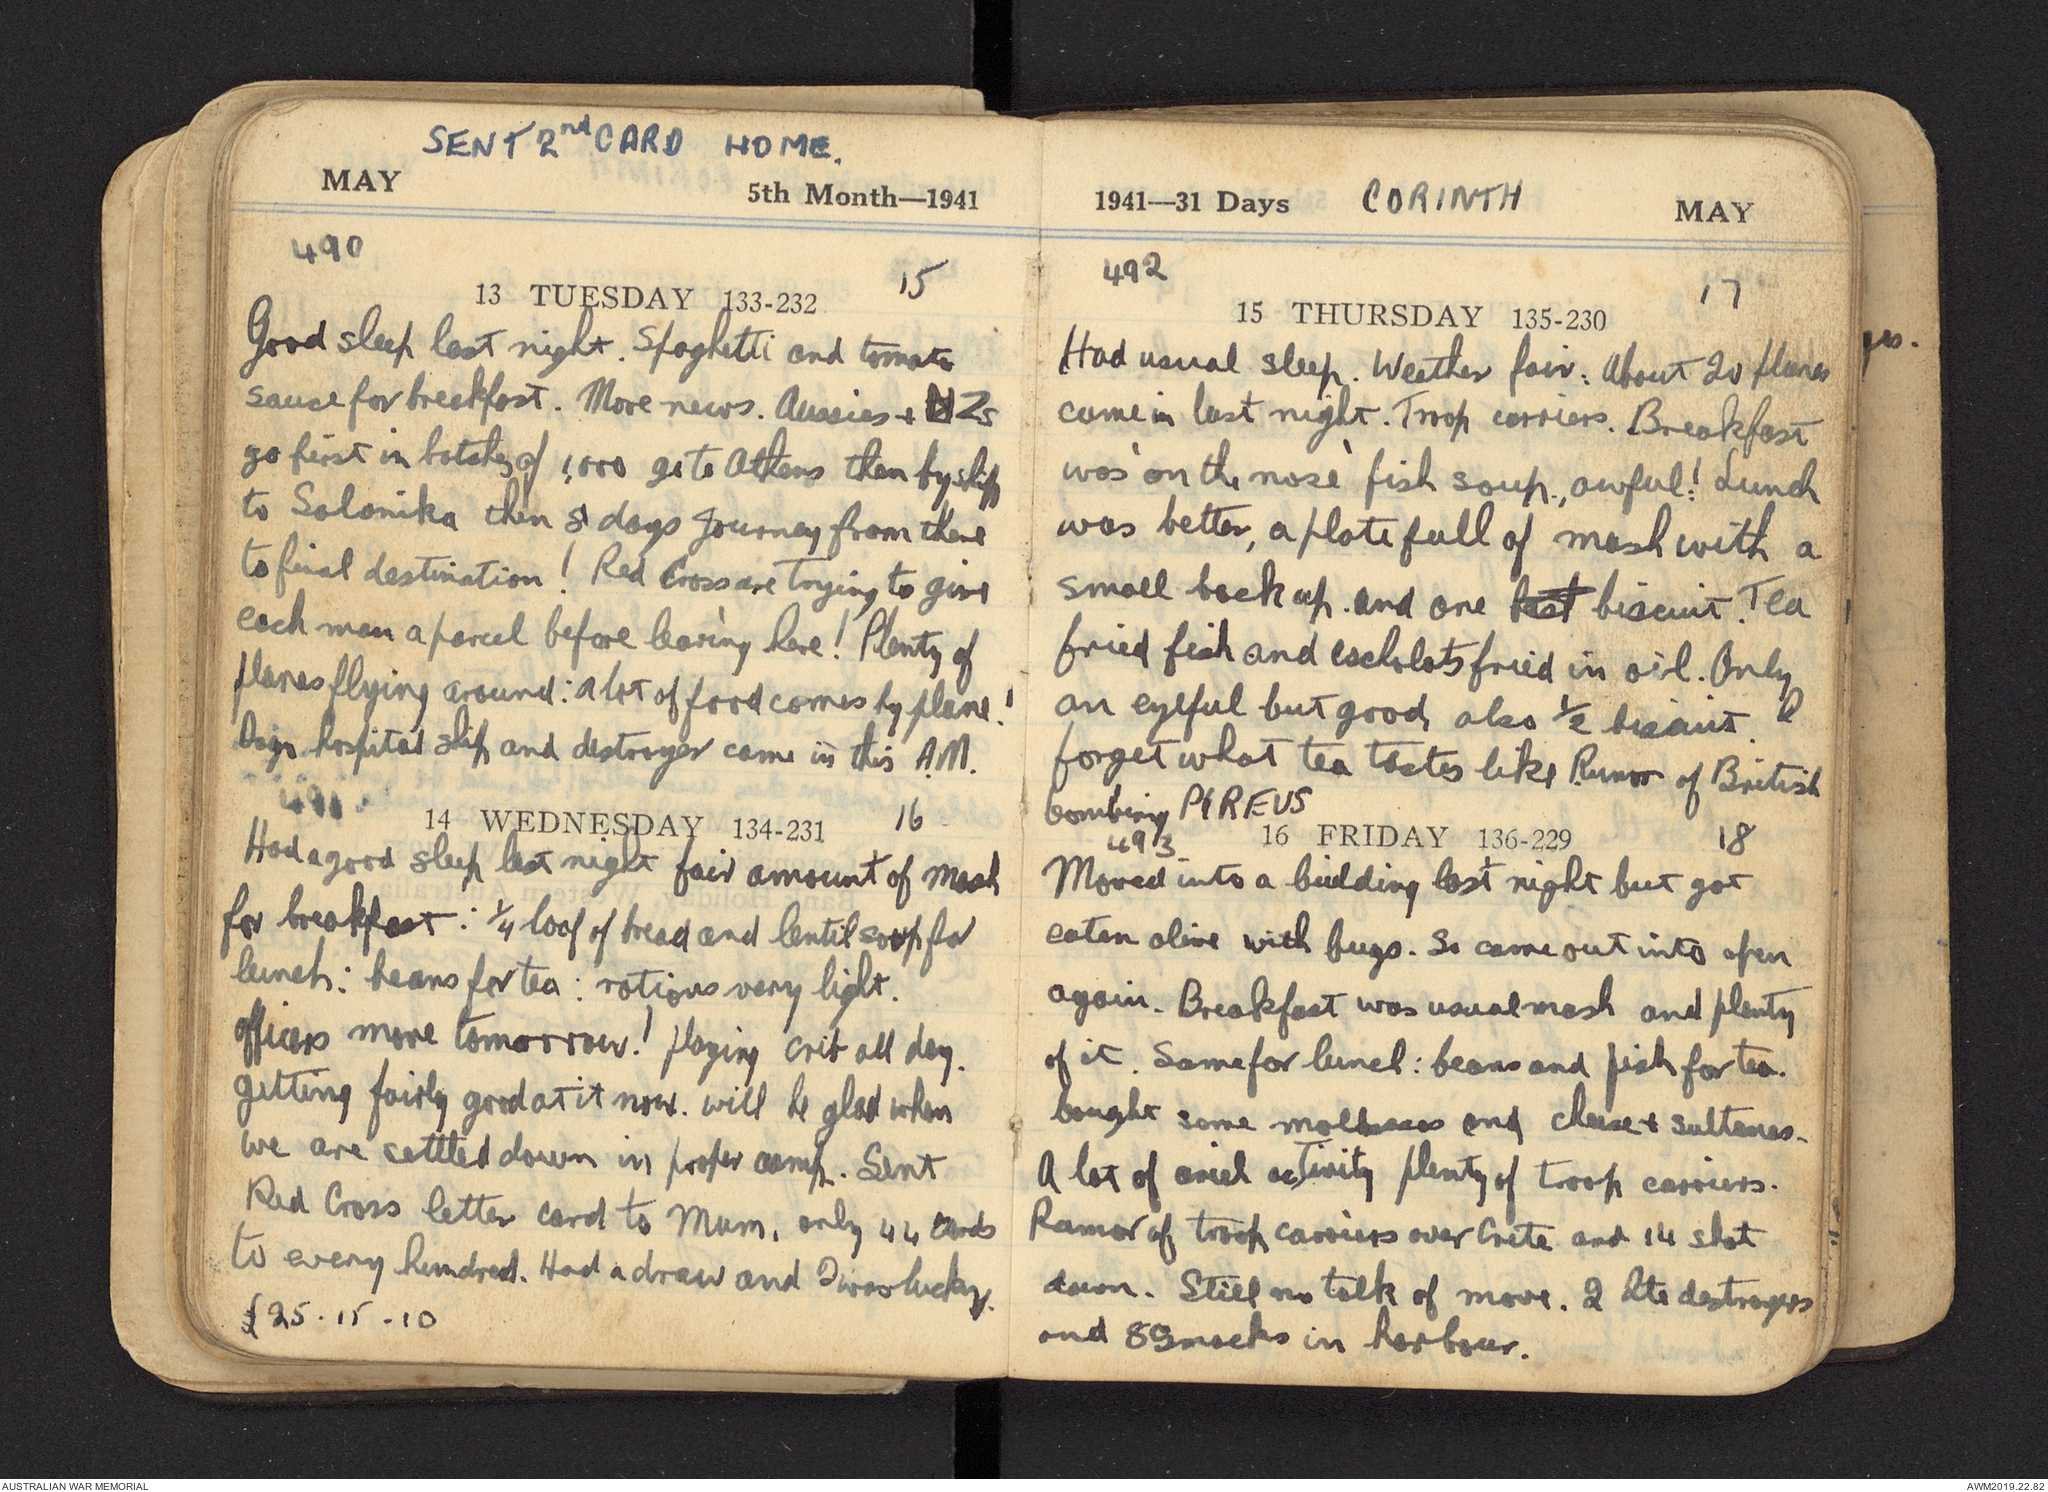 SENT 2nd CARD HOME.
MAY 5th Month—1941
490
13 TUESDAY 133-232 15
Good sleep last night. Spaghetti and tomato
sauce for breakfast. More news. Aussies + NZs
go first in batches of 1,000 go to Athens then by ship
to Salonika then 5 days Journey from there
to final destination! Red Cross are trying to give
each man a parcel before leaving here! Plenty of
planes flying around: a lot of food comes by plane!
hospital ship and destroyer came in this A.M.
491
14 WEDNESDAY 134-231 16
Had a good sleep last night fair amount of mash
for breakfast: ¼ loaf of bread and lentil soup for
lunch: beans for tea: rations very light.
Officers move tomorrow! playing crib all day.
getting fairly good at it now. will be glad when
we are settled down in proper camp. Sent
Red Cross letter card to Mum, only 44 cards
to every hundred. Had a draw and I was lucky.
£25-15-10
1941—31 Days CORINTH MAY
492
15 THURSDAY 135-230 17
Had usual sleep. Weather fair: About 20 planes
came in last night. Troop carriers. Breakfast
was 'on the nose' fish soup, awful! Lunch
was better, a plate full of mash with a
small back up. and one biscuit. Tea
fried fish and eschelots fried in oil. Only
an eyeful but good, also ½ biscuit. I
forget what tea tastes like. Rumor of British
bombing PIREUS
493
16 FRIDAY 136-229 18
Moved into a building last night but got
eaten alive with bugs. So came out into open
again. Breakfast was usual mash and plenty
of it. Same for lunch: beans and fish for tea.
bought some molasses and cheese + sultanas.
A lot of ariel activity plenty of troop carriers.
Rumor of troop carriers over Crete and 14 shot
down. Still no talk of move. 2 Ite destroyers
and 8 Smacks in harbour.
AUSTRALIAN WAR MEMORIAL
AWM2019.22.82